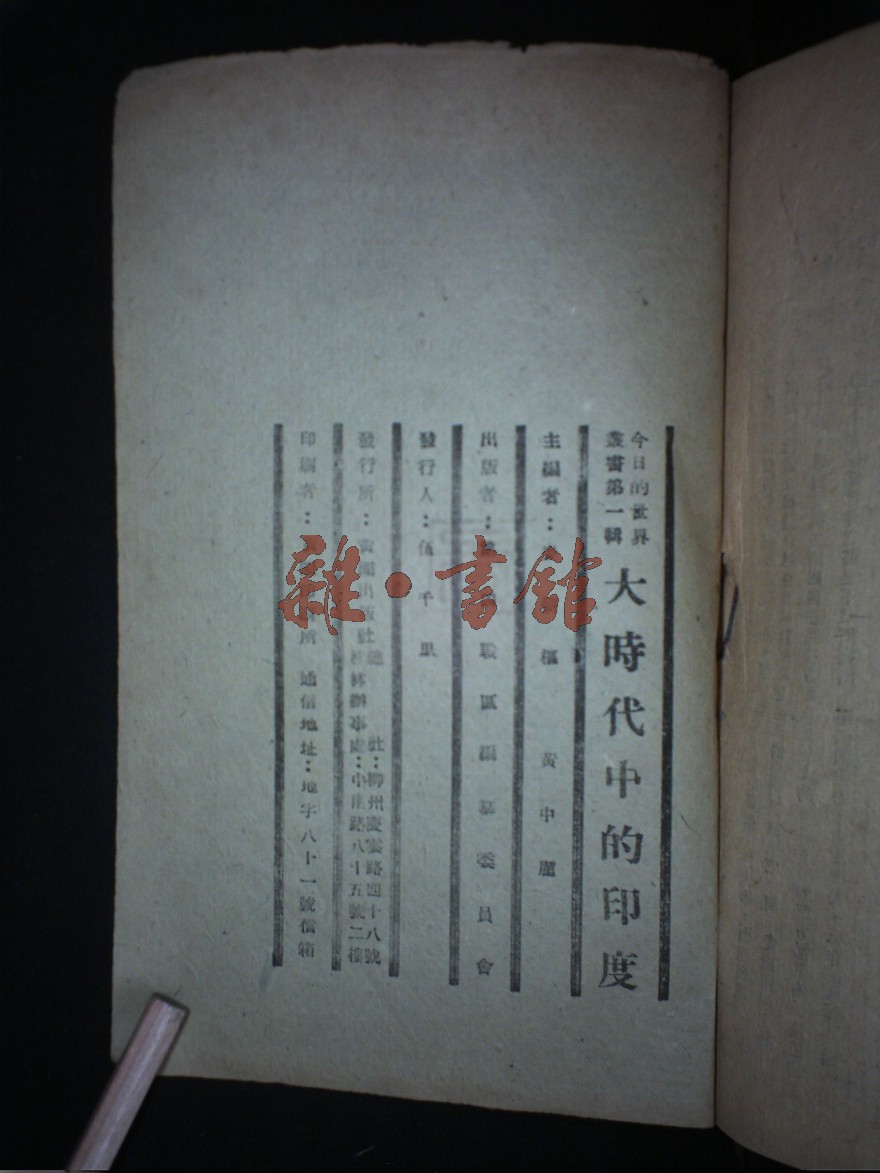 今日的世界
叢書第一輯
大時代中的印度
主編者：樞 黃中廬
出版者：戰區編纂委員會
發行人：伍千里
發行所：
總社：柳州慶雲路四十八號
桂林辦事處：中南路八十五號二樓
印刷者：所 通信地址：地字八十一號信箱
雜·書館